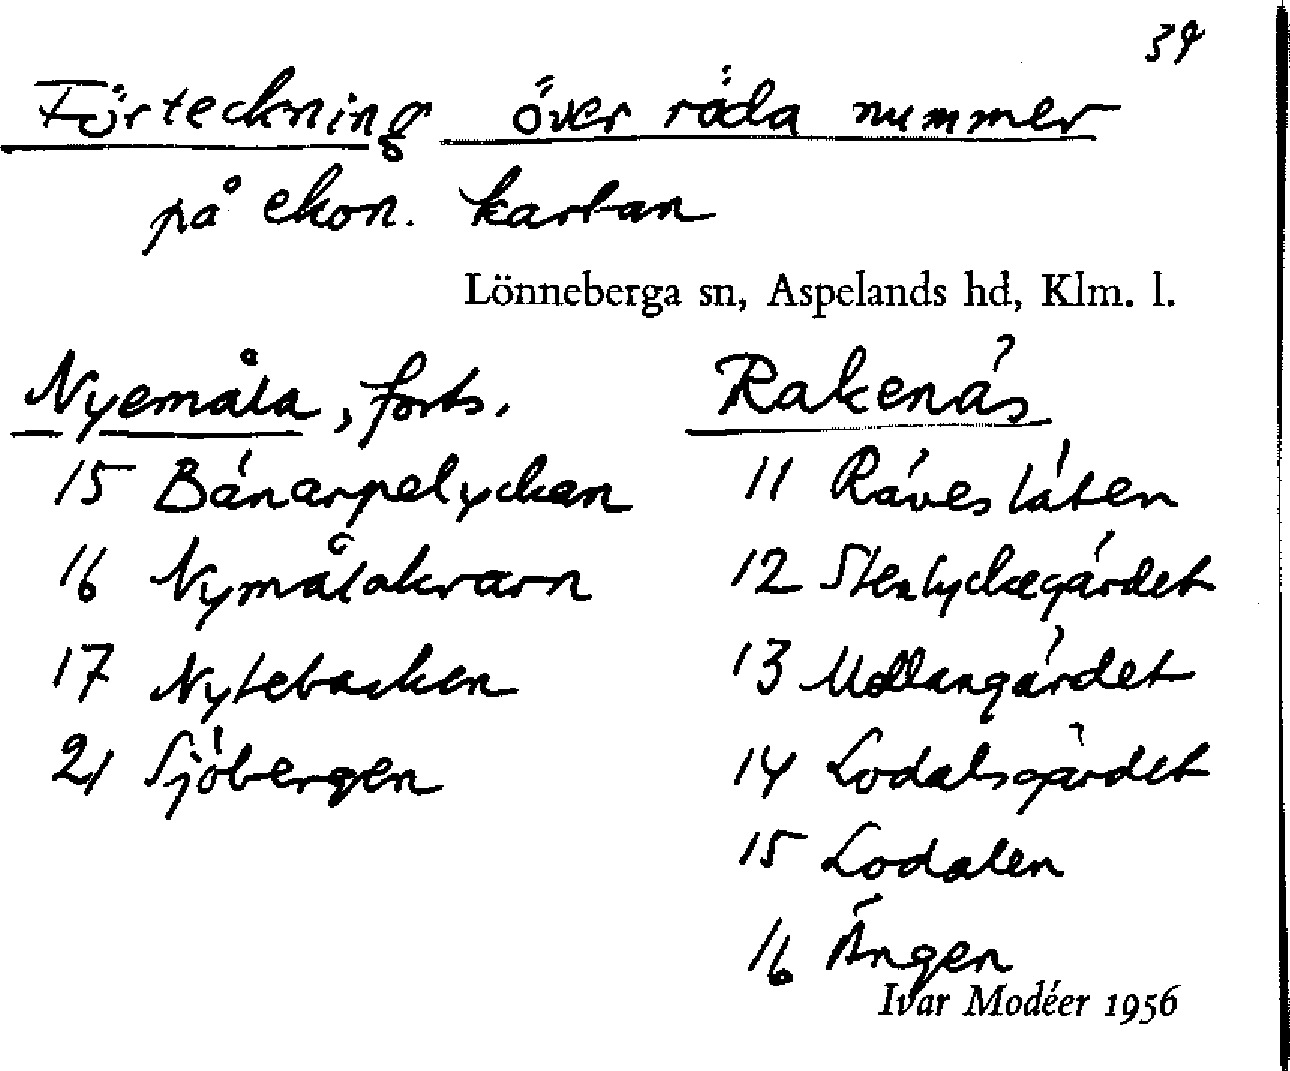 39
Förteckning över röda nummer
på ekon. kartan
Lönneberga sn, Aspelands hd, Klm. l.
Nyemåla, forts.
15 Bänarpelyckan
16 Nymålakvarn
17 Nytebacken
21 Sjöbergen
Rakenäs
11 Räveslåten
12 Stenlyckegärdet
13 Mellangärdet
14 Lodalsgärdet
15 Lodalen
16 Ängen
Ivar Modéer 1956